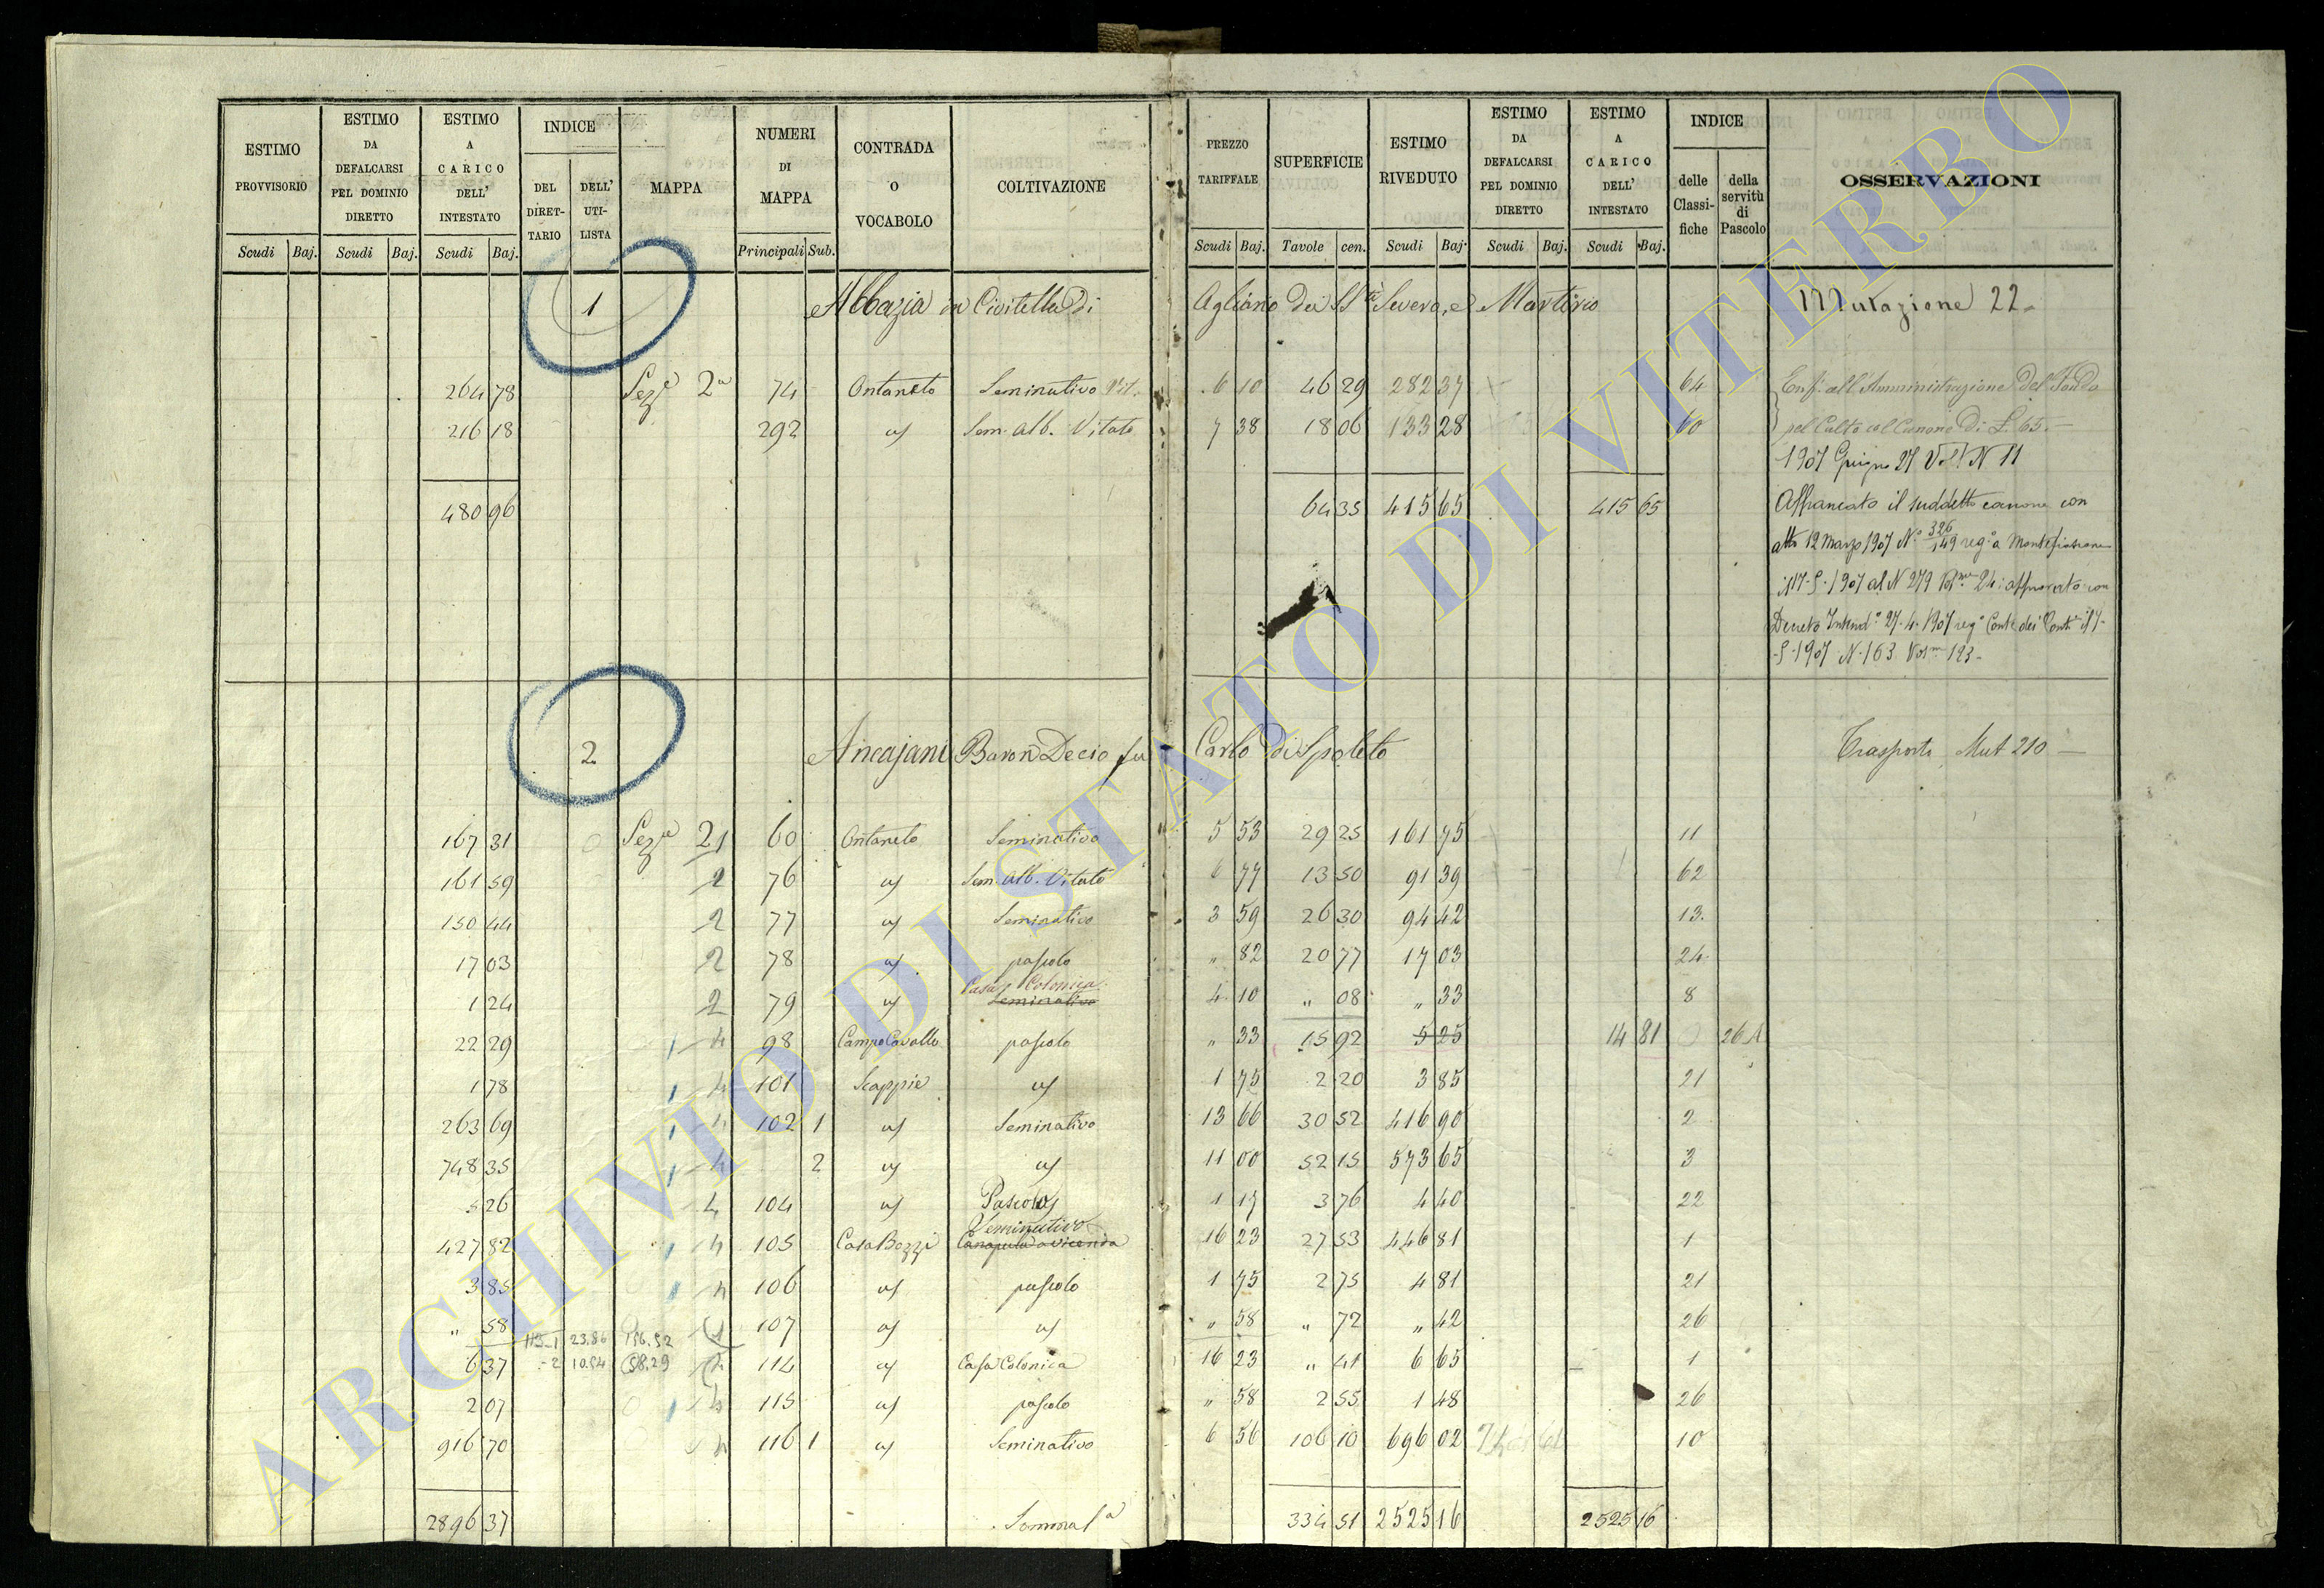 ESTIMO PROVVISORIO | ESTIMO DA DEFALCARSI PEL DOMINIO DIRETTO | ESTIMO A CARICO DELL' INTESTATO | INDICE | MAPPA | NUMERI DI MAPPA | CONTRADA O VOCABOLO | COLTIVAZIONE | PREZZO TARIFFALE | SUPERFICIE | ESTIMO RIVEDUTO | ESTIMO DA DEFALCARSI PEL DOMINIO DIRETTO | ESTIMO A CARICO DELL' INTESTATO | INDICE | OSSERVAZIONI
DEL DIRET-TARIO | DELL' UTI-LISTA | delle Classi-fiche | della servitù di Pascolo
Scudi | Baj. | Scudi | Baj. | Scudi | Baj. | Principali | Sub. | Scudi | Baj. | Tavole | cen. | Scudi | Baj. | Scudi | Baj. | Scudi | Baj.
1 Abbazia in Civitella di Agliano dei SSti Severo, e Martirio Mutazione 22
264 78 Sezé 2a 74 Ontaneto Seminativo Vit. 6 10 46 29 282 37 64 Enf. all'Amministrazione del Fondo
216 18 292 " Sem. alb. Vitato 7 38 18 06 133 28 60 pel Culto col Canone di L. 65.
1907 Giugno 27 Vol. 1 N 11
480 96 64 35 415 65 415 65 Affrancato il suddetto canone con
atto 12 Marzo 1907 N. 326/149 reg.o a Montefiascone
il 17-5-1907 al N 279 Volme 24 approvato con
Decreto Intend.a 27-4-1907 reg.o Corte dei Conti il 17-
-5-1907 N. 163 Volm 123
2 Ancajani Baron Decio fu Carlo di Spoleto Trasporto, Mut 210
167 31 Sezé 21 60 Ontaneto Seminativo 5 53 29 25 161 75 11
161 59 2 76 " Sem. alb. Vitato 6 77 13 50 91 39 62
150 44 2 77 " Seminativo 3 59 26 30 94 42 13
17 03 2 78 " pascolo " 82 20 77 17 03 24
Casa Colonica
1 24 2 79 " Seminativo 4 10 " 08 " 33 8
22 29 1 4 98 Campo Cavallo pascolo " 33 15 92 5 25 14 81 26 A
1 78 1 4 101 Scappie " 1 75 2 20 3 85 21
263 69 1 4 102 1 " Seminativo 13 66 30 52 416 90 2
748 35 1 4 2 " " 11 00 52 15 573 65 3
5 26 4 104 " Pascolo 1 17 3 76 4 40 22
Seminativo
427 82 1 4 105 Casa Bozzi Canapula a vicenda 16 23 27 53 446 81 1
3 85 1 4 106 " pascolo 1 75 2 75 4 81 21
" 58 115-1 23.86 156.52 107 " " " 58 " 72 " 42 26
6 37 -2 10.54 58.29 114 " Casa Colonica 16 23 " 41 6 65 1
2 07 1 4 115 " pascolo " 58 2 55 1 48 26
916 70 4 116 1 " Seminativo 6 56 106 10 696 02 10
2896 37 Somma la 334 51 2525 16 2525 16
ARCHIVIO DI STATO DI VITERBO